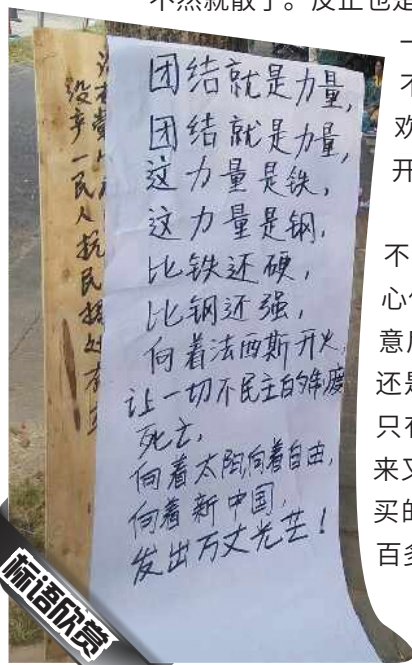 不然就散了。反正也是
一
不
欢
开
不
意
还是
只有
来又
买的
百多
团结就是力量,
团结就是力量,
这力量是铁,
这力量是钢,
比铁还硬,
比钢还强,
向着法西斯开火,
让一切不民主的制度
死亡,
向着太阳向着自由,
向着新中国,
发出万丈光芒!
标语欣赏